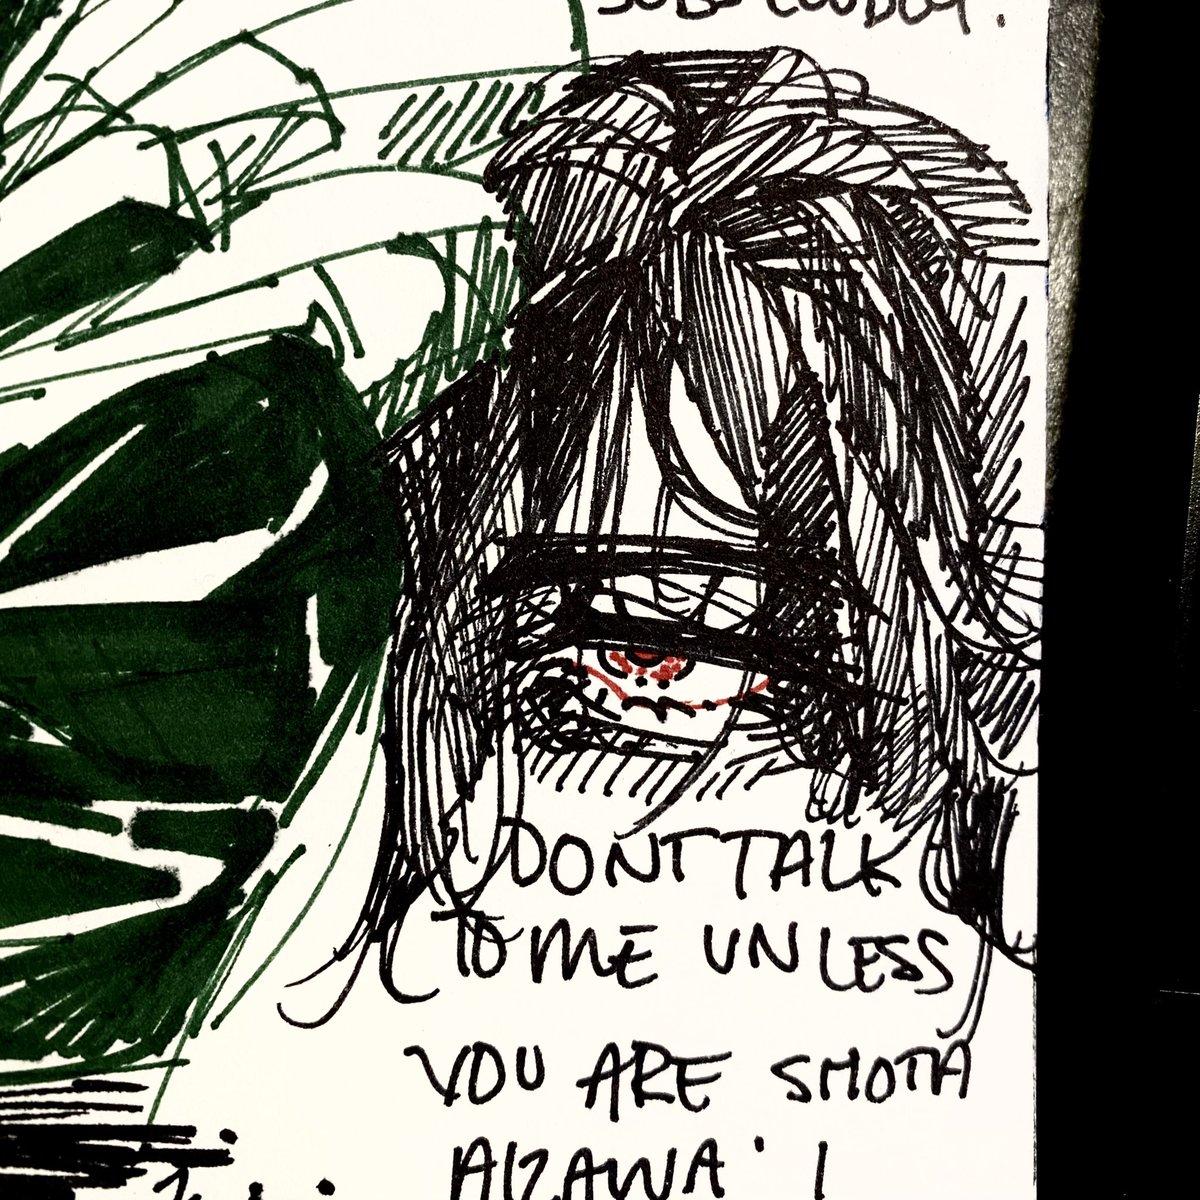 DONT TALK
TO ME UNLESS
YOU ARE SHOTA
AIZAWA !